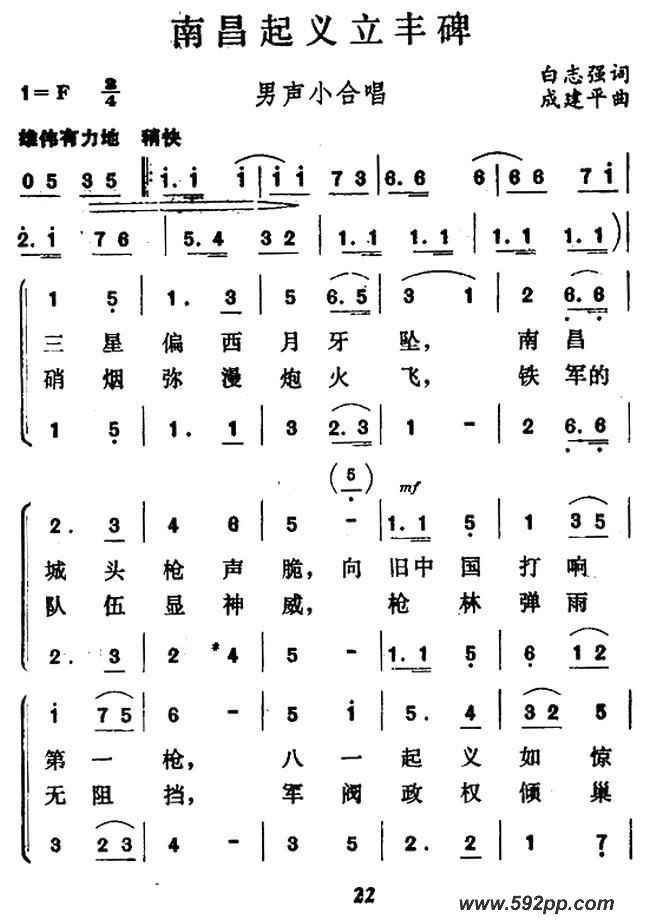 南昌起义立丰碑
白志强词
1=F 2/4 男声小合唱 成建平曲
雄伟有力地 稍快
0 5 3 5 1. 1 1 1 1 7 3 6. 6 6 6 6 7 1
2. 1 7 6 5. 4 3 2 1. 1 1. 1 1. 1 1. 1
1 5 1. 3 5 6. 5 3 1 2 6. 6
三星偏西月牙坠，南昌
硝烟弥漫炮火飞，铁军的
1 5 1. 1 3 2. 3 1 - 2 6. 6
(5) mf
2. 3 4 6 5 - 1. 1 5 1 3 5
城头枪声脆，向旧中国打响
队伍显神威，枪林弹雨
2. 3 2 #4 5 - 1. 1 5 6 1 2
1 7 5 6 - 5 1 5. 4 3 2 5
第一枪，八一起义如惊
无阻挡，军阀政权倾巢
3 2 3 4 - 3 5 2. 2 1 7
22
www.592pp.com